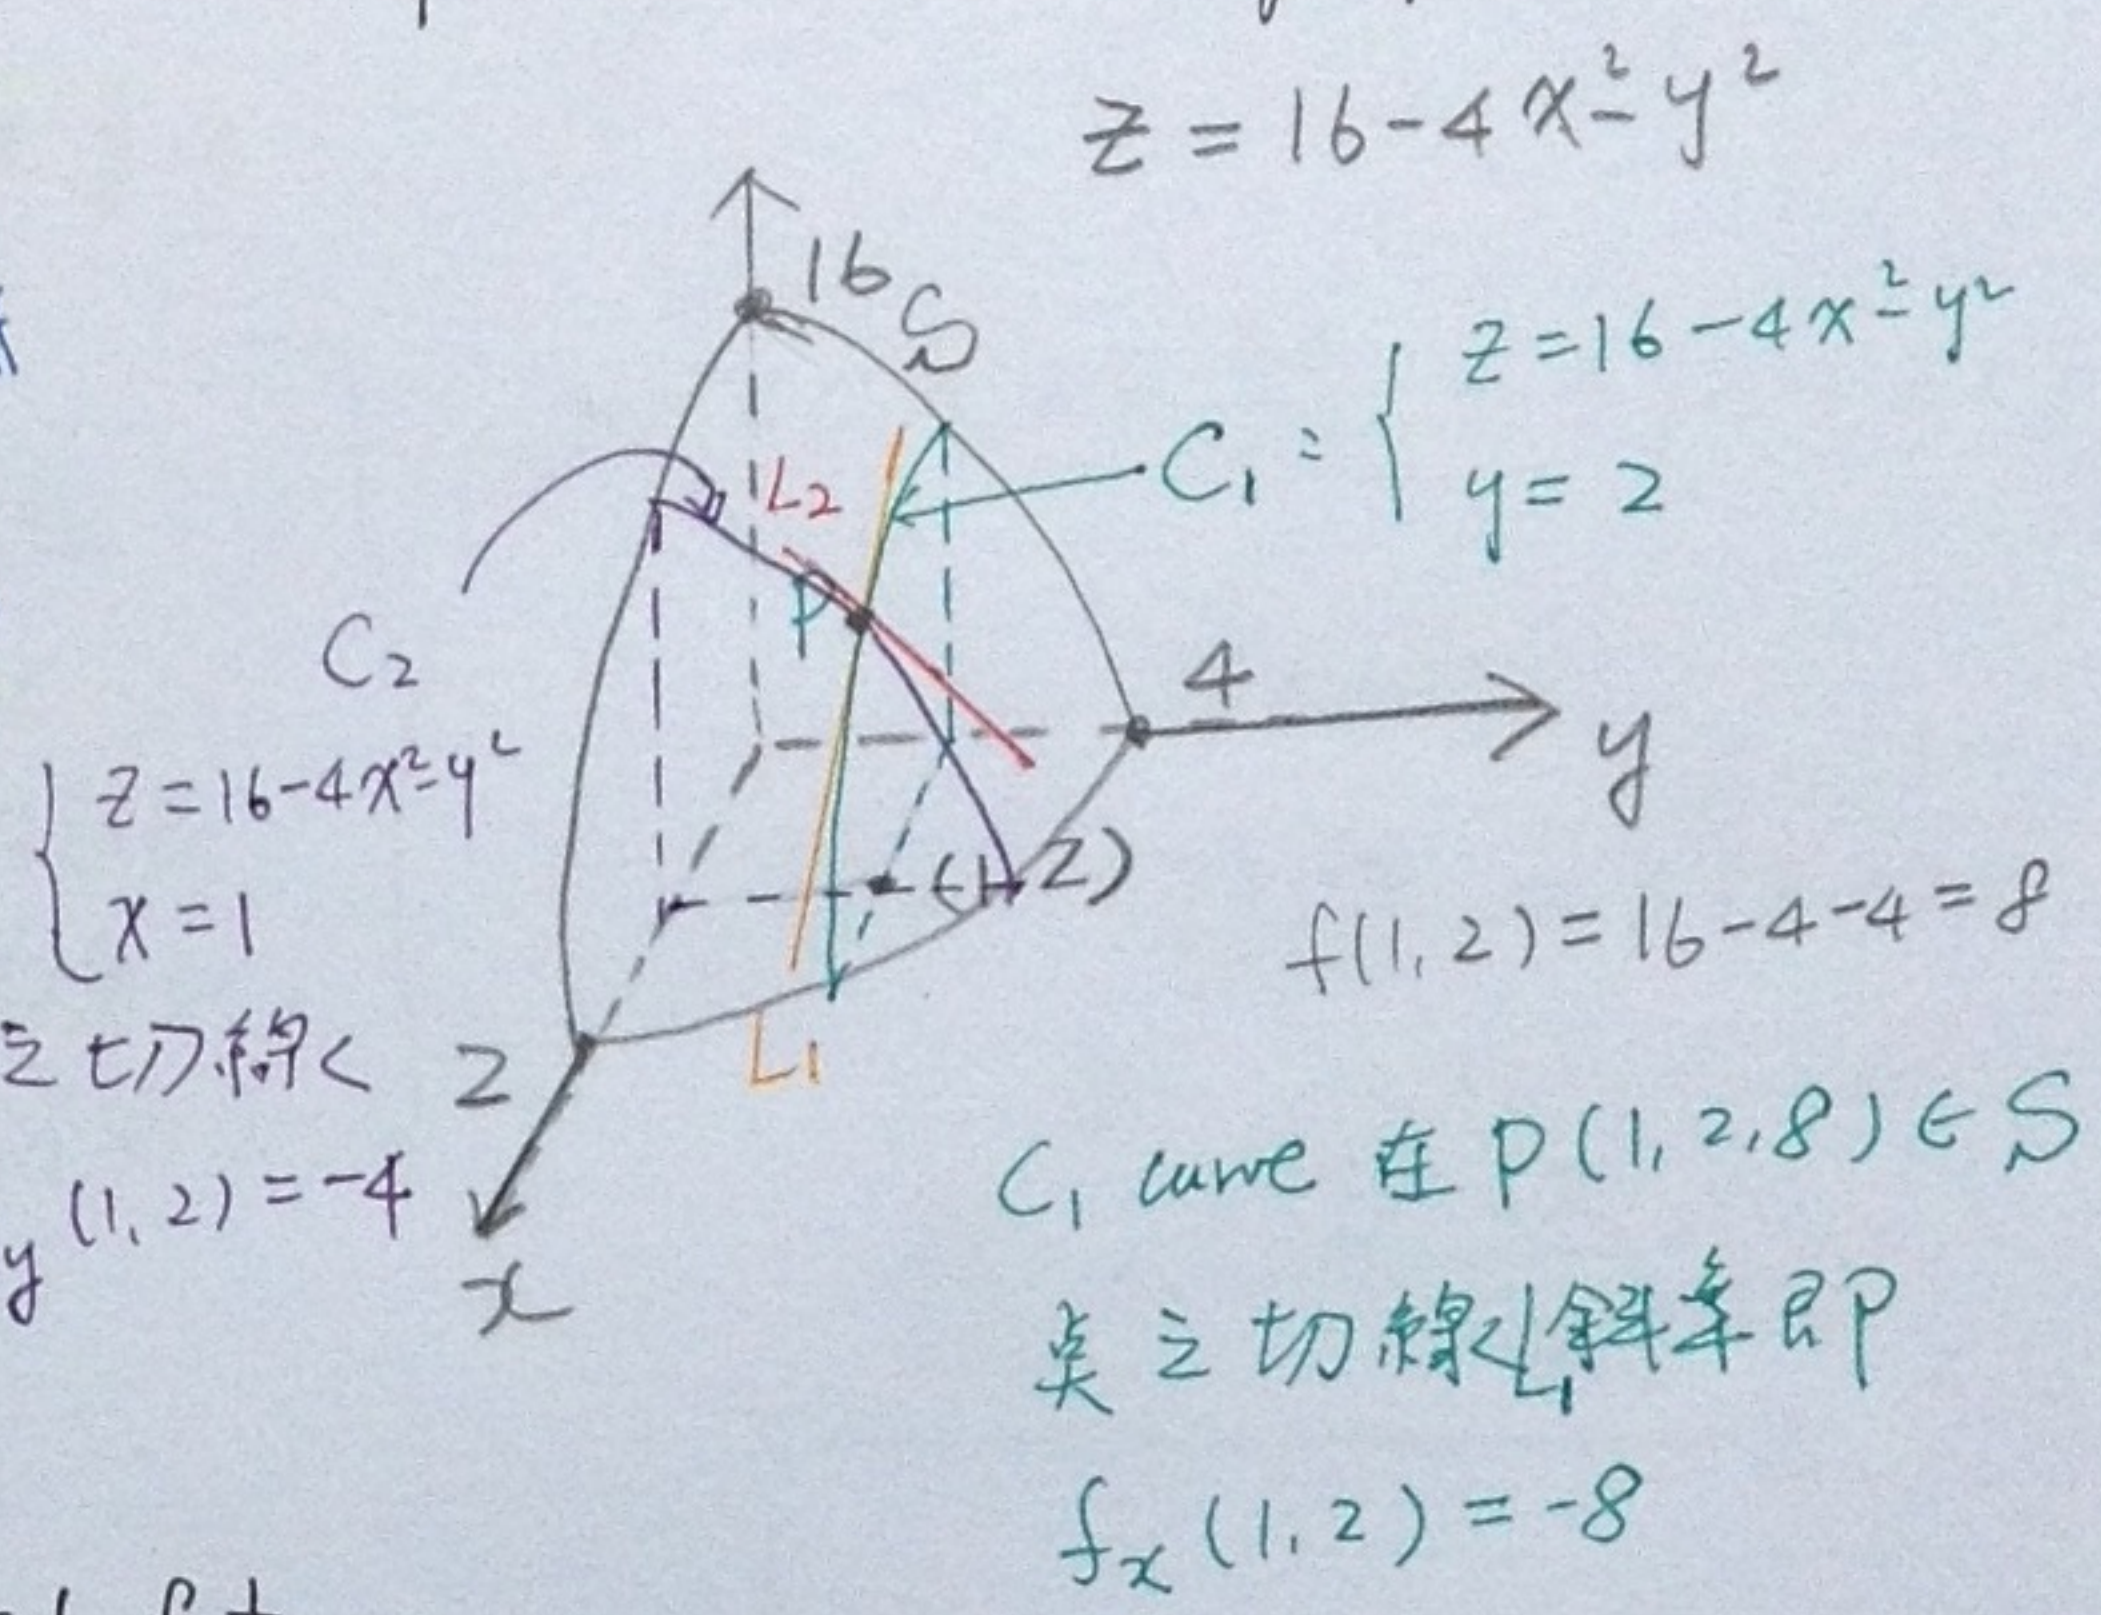 z = 16 - 4x² - y²
16
S
C₁ : { z = 16 - 4x² - y²
y = 2
L₂
P
C₂
4
y
{ z = 16 - 4x² - y²
x = 1
(1, 2)
f(1, 2) = 16 - 4 - 4 = 8
之切線
2
L₁
C₁ curve 在 P(1, 2, 8) ∈ S
y (1, 2) = -4
x
点之切線L₁斜率即
fₓ(1, 2) = -8